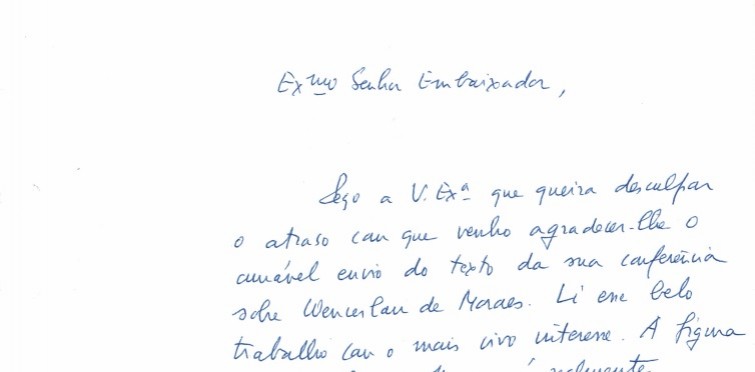 Exmo Senhor Embaixador,
Peço a V. Exª que queira desculpar
o atraso com que venho agradecer-lhe o
amável envio do texto da sua conferência
sobre Wenceslau de Moraes. Li esse belo
trabalho com o mais vivo interesse. A figura